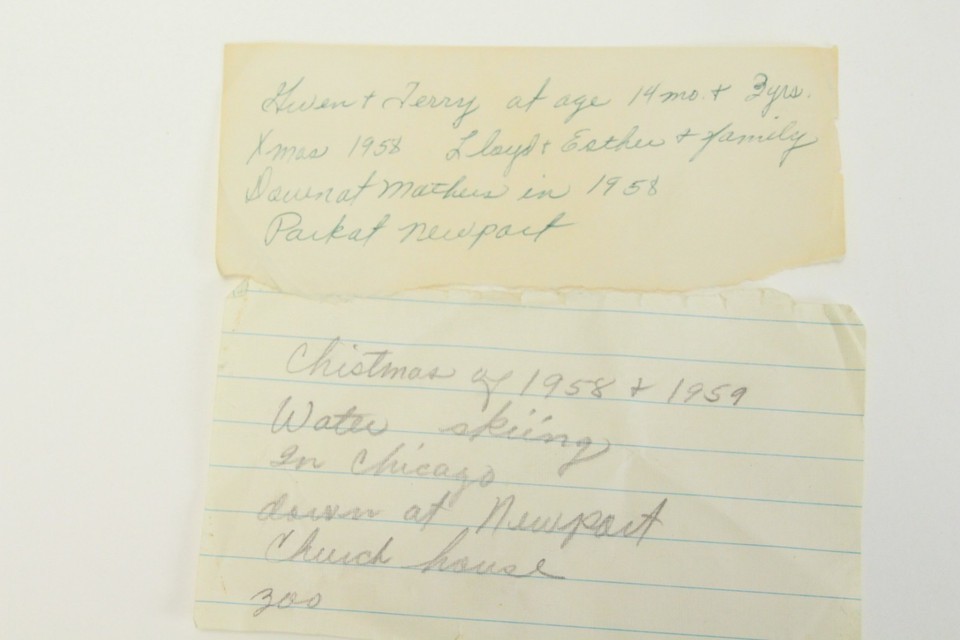 Gwen + Terry at age 14 mo. + 3 yrs.
Xmas 1958 Lloyd + Esther + family
Down at Mothers in 1958
Park at Newport
Chistmas of 1958 + 1959
Water skiing
In Chicago
down at Newport
Church house
zoo